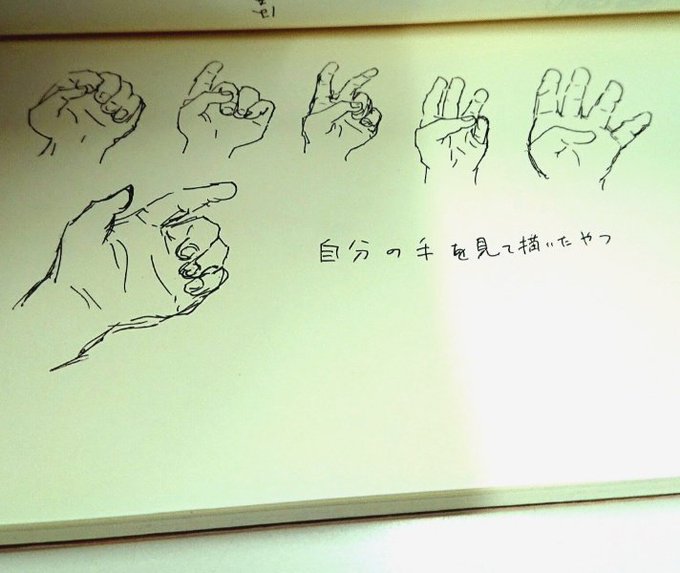 自分の手を見て描いたやつ